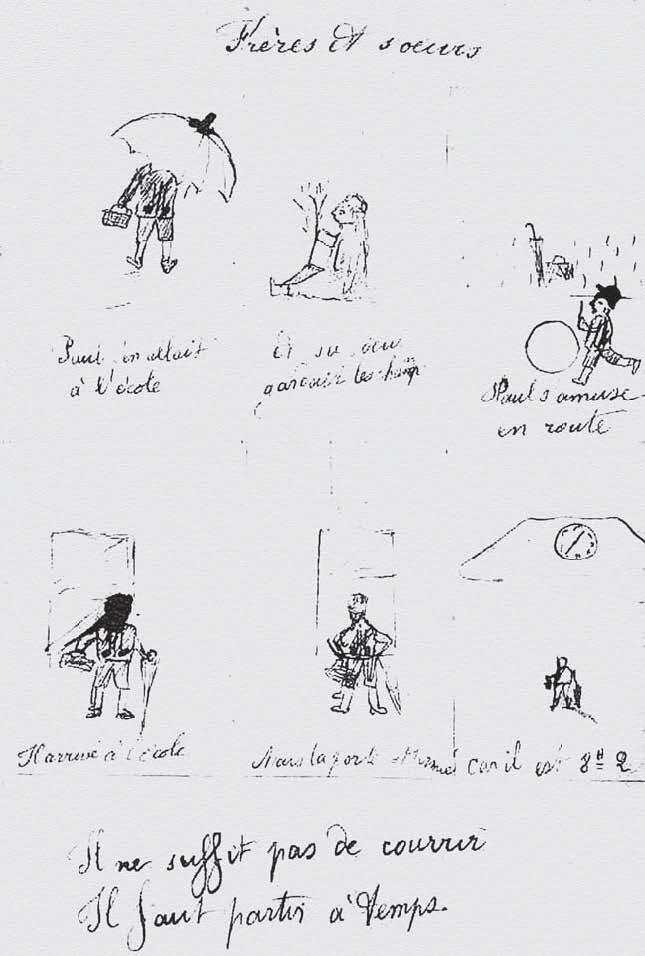 Frères et soeurs
Paul s'en allait
à l'école
Et sa soeur
les champ
Paul s'amuse
en route
Il arrive à l'école
Mais la porte car il est 8H 2
Il ne suffit pas de courrir
Il faut partir à temps.